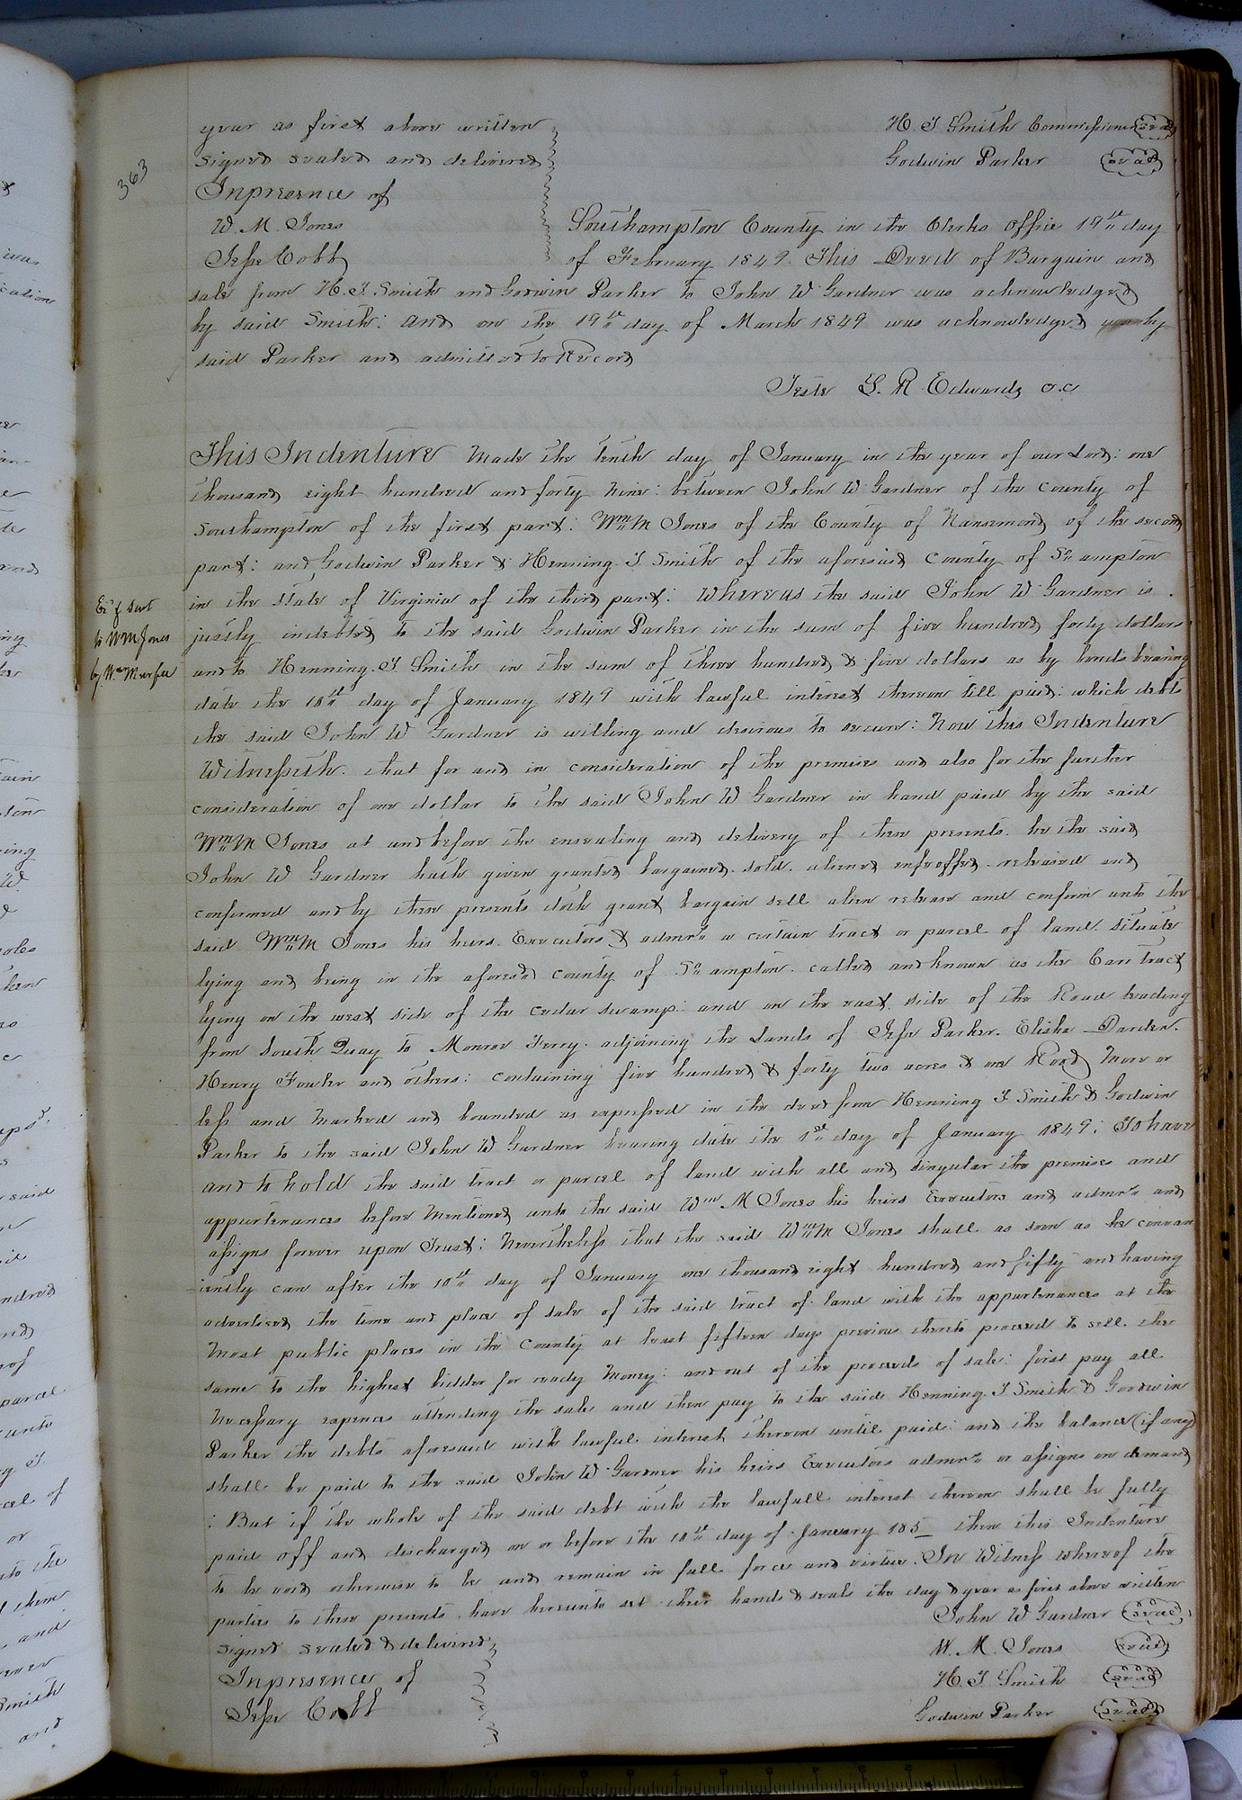 363
year as first above written
signed sealed and delivered
Inpresence of
W. M. Jones
Jesse Cobb
H T Smith Commissioner seal
Godwin Parker seal
Southampton County in the Clerks office 19th day
of February 1849. This Deed of Bargain and
sale from H. T Smith and Godwin Parker to John W Gardner was acknowledged
by said Smith: and on the 19th day of March 1849 was acknowledged by
said Parker and admitted to Record
Teste L. R Edwards c.c
This Indenture made the tenth day of January in the year of our Lord: one
thousand eight hundred and forty nine: between John W Gardner of the County of
Southampton of the first part: Wm M Jones of the County of Nansemond of the second
part: and Godwin Parker & Henning T Smith of the aforesaid County of So ampton
in the State of Virginia of the third part: Whereas the said John W Gardner is
justly indebted to the said Godwin Parker in the sum of five hundred forty dollars
and to Henning. T Smith in the sum of three hundred & five dollars as by bonds bearing
date the 10th day of January 1849 with lawful interest thereon till paid: which debts
the said John W Gardner is willing and desirous to secure: Now this Indenture
Witnesseth. that for and in consideration of the premises and also for the further
consideration of one dollar to the said John W Gardner in hand paid by the said
Wm M Jones at and before the ensealing and delivery of these presents. he the said
John W Gardner hath given granted bargained. sold. aliened enfeoffed. released and
conformed and by these presents doth grant bargain sell alien release and confirm unto the
said Wm M Jones his heirs. Executors & admrs a certain tract or parcel of land. situate
lying and being in the aforesd county of So ampton. called and known as the Carr tract
lying on the west side of the cedar swamp: and on the east side of the Road leading
from South Quay to Monroe Ferry. adjoining the Lands of Jesse Parker. Elisha Darden.
Henry Fowler and others: containing five hundred & forty two acres & one Rood more or
less and marked and bounded as expressed in the deed from Henning T Smith & Godwin
Parker to the said John W Gardner bearing date the 1st day of January 1849: To have
and to hold the said tract or parcel of land with all and singular the premises and
appurtenances before mentioned unto the said Wm M Jones his heirs Executors and admrs and
assigns forever upon Trust: Nevertheless that the said Wm M Jones shall as soon as he conven
iently can after the 10th day of January one thousand eight hundred and fifty and having
advertised the time and place of sale of the said tract of land with the appurtenances at the
most public places in the County at least fifteen days previous thereto proceed to sell the
same to the highest bidder for ready money: and out of the proceeds of sale: first pay all
necessary expences attending the sale and then pay to the said Henning. T Smith & Goodwin
Parker the debts aforesaid with lawful interest thereon until paid: and the balance (if any)
shall be paid to the said John W Gardner his heirs Executors admrs or assigns on demand
: But if the whole of the said debt with the lawfull interest thereon shall be fully
paid off and discharged on or before the 10th day of January 185_ then this Indenture
to be void otherwise to be and remain in full force and virtue. In Witness whereof the
parties to these presents have hereunto set their hands & seals the day & year as first above written
signed sealed & delivered
Inpresence of
Jesse Cobb
John W Gardner seal
W. M. Jones seal
H. T Smith seal
Godwin Parker seal
to WM Jones